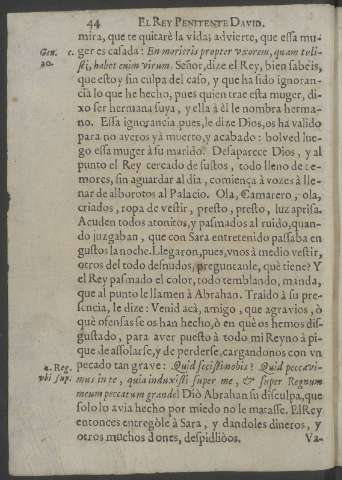 44 EL REY PENITENTE DAVID.
mira, que te quitarè la vida; advierte, que essa mu-
Gen. c. 20.
ger es casada: En morieris propter vxorem, quam tuli-
sti, habet enim virum. Señor, dize el Rey, bien sabeis,
que estoy sin culpa del caso, y que ha sido ignoran-
cia lo que he hecho, pues quien trae esta muger, di-
xo ser hermana suya, y ella à èl le nombra herma-
no. Essa ignorancia, pues, le dize Dios, os ha valido
para no averos yà muerto, y acabado: bolved luego
essa muger à su marido. Desaparece Dios, y al
punto el Rey cercado de sustos, todo lleno de te-
mores, sin aguardar al dia, comiença à vozes à lle-
nar de alborotos al Palacio. Ola, Camarero, ola,
criados, ropa de vestir, presto, presto, luz aprisa.
Acuden todos atonitos, y pasmados al ruido, quan-
do juzgaban, que con Sara entretenido passaba en
gustos la noche. Llegaron, pues, vnos à medio vestir,
otros del todo desnudos, preguntanle, què tiene? Y
el Rey pasmado el color, todo temblando, manda,
que al punto le llamen à Abrahan. Traido à su pre-
sencia, le dize: Venid acà, amigo, que agravios, ò
què ofensas se os han hecho, ò en què os hemos dis-
gustado, para aver puesto à todo mi Reyno à pi-
que de assolarse, y de perderse, cargandonos con vn
2. Reg. vbi sup.
pecado tan grave: Quid fecisti nobis? Quid peccavi-
mus in te, quia induxisti super me, & super Regnum
meum peccatum grande? Diò Abrahan su disculpa, que
solo lo avia hecho por miedo no le matasse. El Rey
entonces entregòle à Sara, y dandoles dineros, y
otros muchos dones, despidliòos. Va-